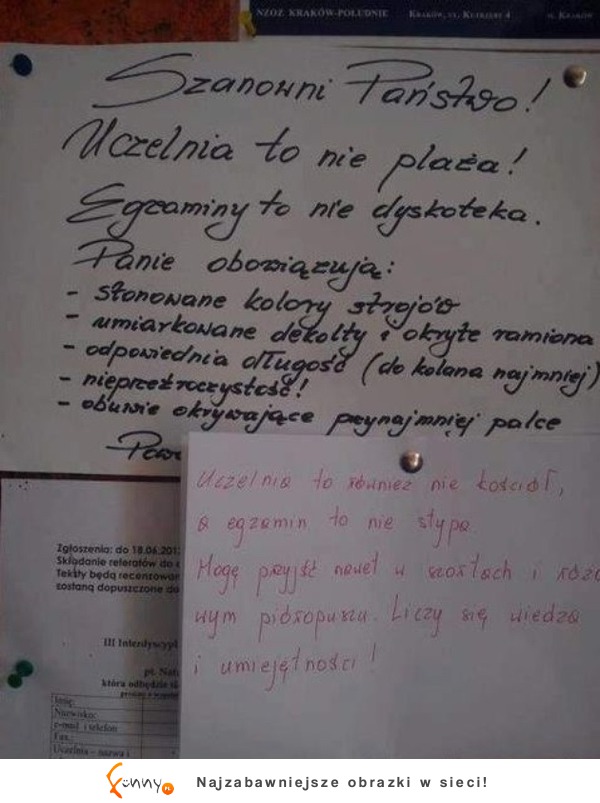 NZOZ KRAKÓW-POŁUDNIE KRAKÓW, UL. KUTRZEBY 4
Szanowni Państwo!
Uczelnia to nie plaża!
Egzaminy to nie dyskoteka.
Panie obowiązują:
- stonowane kolory strojów
- umiarkowane dekolty i okryte ramiona
- odpowiednia długość (do kolana najmniej)
- nieprzeźroczystość!
- obuwie okrywające przynajmniej palce
Uczelnia to również nie kościół,
a egzamin to nie stypa.
Mogę przyjść nawet w szortach i różo
wym pióropuszu. Liczy się wiedza
i umiejętności!
Zgłoszenia: do 18.06.201
Składanie referatów do
Teksty będą recenzowan
zostaną dopuszczone do
III Interdyscypl
pt. Nat
która odbędzie si
Imię:
Nazwisko:
e-mail i telefon
Fax.:
Uczelnia – nazwa i
Funny.PL Najzabawniejsze obrazki w sieci!